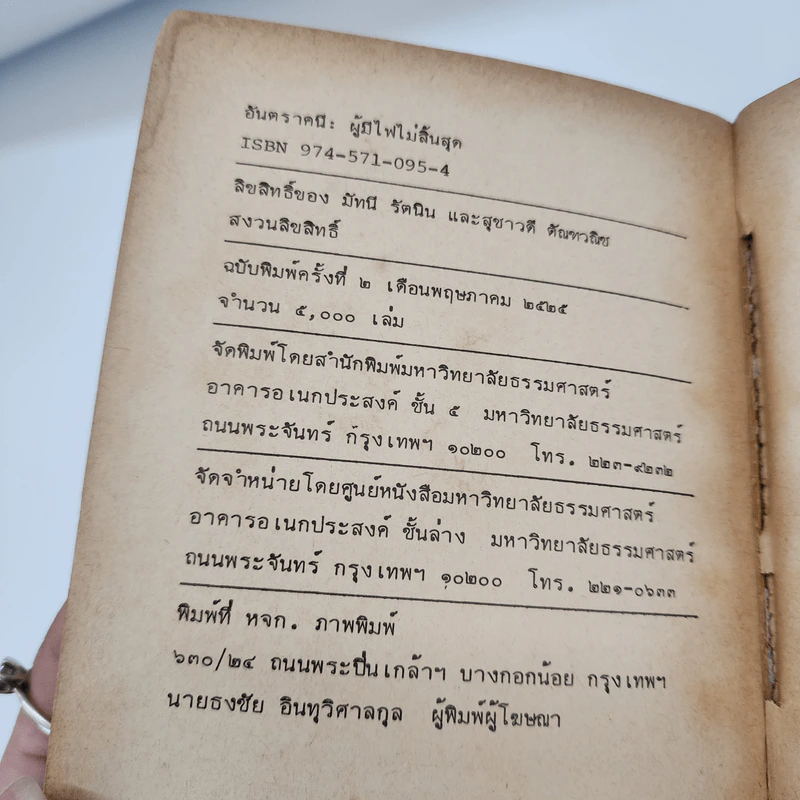 อันตราคนี: ผู้มีไฟไม่สิ้นสุด
ISBN 974-571-095-4
ลิขสิทธิ์ของ มัทนี รัตนิน และสุชาวดี ตัณฑวณิช
สงวนลิขสิทธิ์
ฉบับพิมพ์ครั้งที่ ๒ เดือนพฤษภาคม ๒๕๒๕
จำนวน ๕,๐๐๐ เล่ม
จัดพิมพ์โดยสำนักพิมพ์มหาวิทยาลัยธรรมศาสตร์
อาคารอเนกประสงค์ ชั้น ๕ มหาวิทยาลัยธรรมศาสตร์
ถนนพระจันทร์ กรุงเทพฯ ๑๐๒๐๐ โทร. ๒๒๓-๙๒๓๒
จัดจำหน่ายโดยศูนย์หนังสือมหาวิทยาลัยธรรมศาสตร์
อาคารอเนกประสงค์ ชั้นล่าง มหาวิทยาลัยธรรมศาสตร์
ถนนพระจันทร์ กรุงเทพฯ ๑๐๒๐๐ โทร. ๒๒๑-๐๖๓๓
พิมพ์ที่ หจก. ภาพพิมพ์
๖๓๐/๒๔ ถนนพระปิ่นเกล้าฯ บางกอกน้อย กรุงเทพฯ
นายธงชัย อินทุวิศาลกุล ผู้พิมพ์ผู้โฆษณา